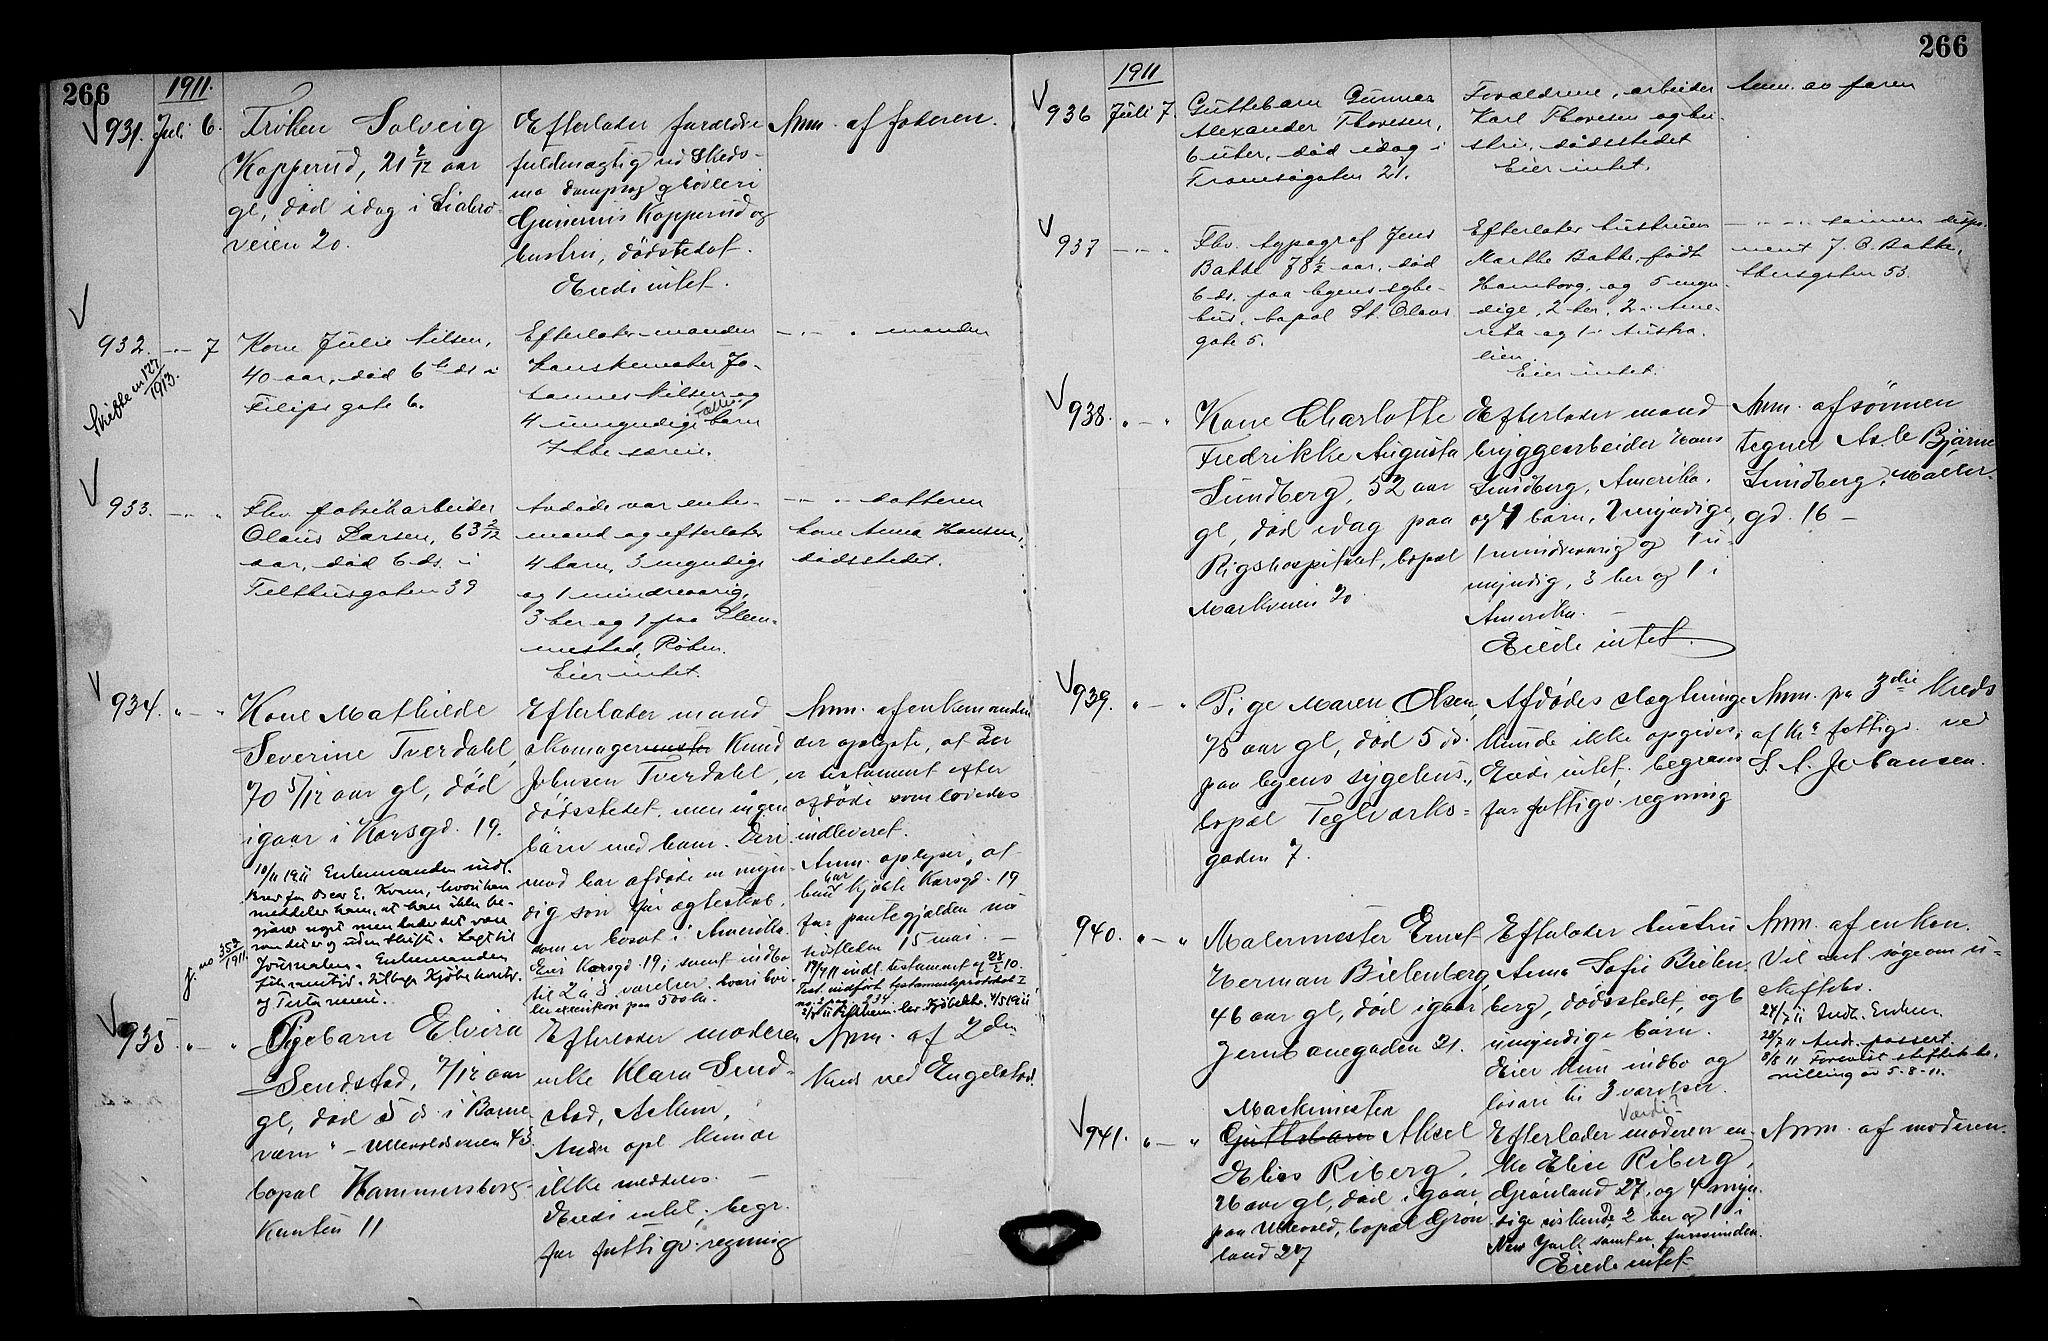 266
1911.
931. Juli 6.
Frøken Solveig
Kopperud, 21 2/12 aar
gl, død idag i Liabrø-
veien 20.
Efterlader forældre
fuldmægtig ved Skeds-
mo Dampsag & Høvleri
Kopperud og
hustru, dødsstedet.
Eied intet.
Anm. af faderen.
932. -"- 7
Kone Julie Nilsen,
40 aar, død 6te ds i
Filips gate 6.
Efterlater manden
Hanskemaker Jo-
hannes Nilsen og
4 umyndige fælles barn
Ikke særeie.
-"- " manden
Skifte n 127/1913.
933. -"- "
Fhv. fabrikarbeider
Olaus Larsen, 63 2/12
aar, død 6 ds. i
Telthusgaten 39
Avdøde var enke-
mand og efterlater
4 barn, 3 myndige
og 1 mindreaarig,
3 her og 1 paa Slem-
mestad, Røken.
Eier intet.
-"- " datteren
kone Anna Hansen,
dødsstedet.
934. " - "
Kone Mathilde
Severine Tverdahl,
70 5/12 aar gl, død
igaar i Korsgd. 19.
10/11 1911 Enkemanden indl.
brev fra Oscar E. Kvam, hvori han
meddeler ham, at han ikke be-
gjærer noget men lader det være
som det er og uden skifte. Lagt til
Journalen. Enkemanden
Kjøbekontr.
og Testamenti.
j. no 352/1911.
Efterlader mand
skomagermester Knud
Johnsen Tverdahl,
dødsstedet, men ingen
børn med ham. Deri-
mod har afdøde en myn-
dig søn før ægteskab,
som er bosat i Amerika.
Eier Korsgd. 19, samt indbo
til 2 a 3 værelser, hvori hvi-
ler exekution paa 500 kr.
Anm. af enkemanden
der oplyste, at der
er testament efter
afdøde som lovedes
indleveret.
Anm. oplyser, at
han har kjøbte Korsgd. 19
for pantegjælden nu
sidstleden 15 mai. -
19/7 11 indl. testament af 28/2 10.
Test. indført testamentprotokol I
no. 2 pag. 234.
935 " - "
Pigebarn Elvira
Sendstad, 7/12 aar
gl, død 5 ds. i Barne-
værn" - Ullevoldsveien 43
bopæl Hammersborg-
kanten 11
Efterlader moderen
enke Klara Send-
stad, Askim,
Andre opl kunde
ikke meddeles. -
Eied intet; begr.
for fattigv. regning
Anm. af 2den
Kreds ved Engelstad.
266
1911
936 Juli 7.
Guttebarn Gunnar
Alexander Thoresen,
6 uker, død idag i
Tromsøgaten 21.
Forældrene, arbeider
Karl Thoresen og hu-
stru, dødsstedet
Eier intet.
Anm. av faren
937 -"- "
Fhv. typograf Jens
Bakke 78 1/2 aar, død
6 ds. paa byens syke-
hus, bopæl St. Olavs
gate 5.
Efterlater hustruen
Marthe Bakke, født
Hamborg, og 5 myn-
dige, 2 her, 2 i Ame-
rika og 1 i Austra-
lien.
Eier intet.
-"- " sønnen dispo-
nent J. C. Bakke,
Akersgaten 53.
938. " - "
Kone Charlotte
Fredrikke Augusta
Sundberg, 52 aar
gl, død idag paa
Rigshospitalet, bopæl
Markveien 20.
Efterlader mand
bryggearbeider Hans
Sundberg, Amerika,
og 4 børn, 2 myndige,
1 mindreaarig og 1 u-
myndig, 3 her og 1 i
Amerika. -
Eiede intet.
Anm. af sønnen
tegner Asle Bjarne
Sundberg, Møller-
gd. 16 -
939. " - "
Pige Maren Olsen,
75 aar gl, død 5 ds.
paa byens sygehus,
bopæl Teglværks-
gaden 7.
Afdødes slægtninge
kunde ikke opgives;
Eied intet; begraves
for fattigv. regning
Anm. pa 3die Kreds
af Kra fattigv. ved
S. A. Johansen.
940. " - "
Malermester Ernst
Herman Bielenberg,
46 aar gl, død igaar
Jernbanegaden 21.
Efterlader hustru
Anna Sofie Bielen-
berg, dødsstedet, og 6
umyndige børn.
Eier kun indbo og
løsøre til 3 værelser.
Værdi?
Anm. af enken.
Vil ant. søge om u-
skiftebo.
24/7 11 Indk. Enken.
28/7 11 Ansø. passert.
8/8 11 Forevist skiftebe-
villing av 5-8-11.
941. " - "
Maskinister
Guttebarn Aksel
Elias Riberg,
26 aar gl, død igaar
paa Ullevold, bopæl Grøn-
land 27
Efterlader moderen en-
ke Elise Riberg,
Grønland 27, og 4 myn-
dige søskende 2 her og 1 i
New York samt en forsvunden.
Eiede intet
Anm. af moderen.